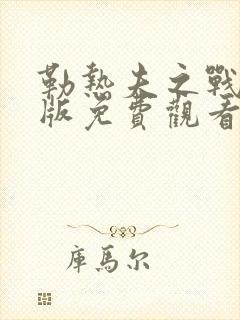 勒熱夫之戰
版免費觀看
庫馬尔